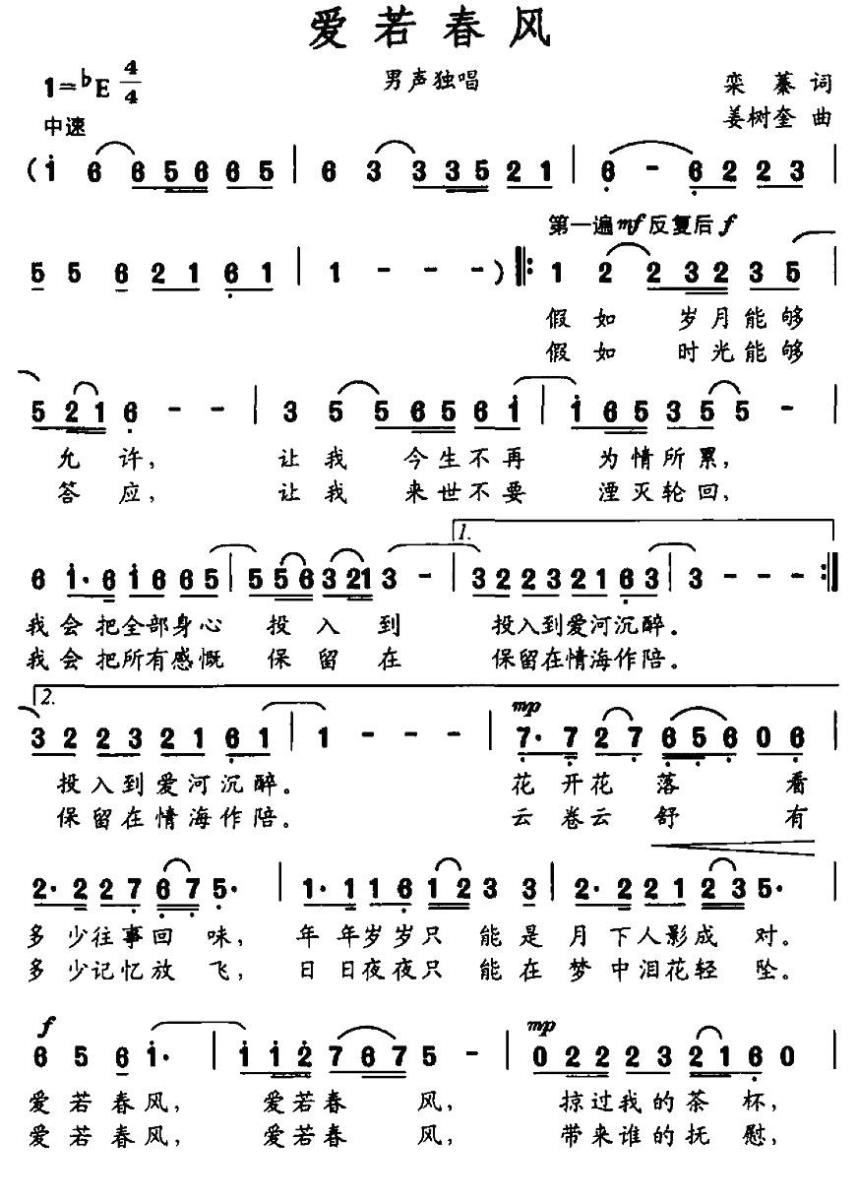 爱若春风
1=♭E 4/4
男声独唱
栾蓁 词
中速
姜树奎 曲
(i 6 6 5 6 6 5 | 6 3 3 3 5 2 1 | 6 - 6 2 2 2 3 |
第一遍 mf 反复后 f
5 5 6 2 1 6 1 | 1 - - - ) ‖: 1 2 2 3 2 3 5 |
假如 岁月能够
假如 时光能够
5 2 1 6 - - | 3 5 5 6 5 6 i | i 6 5 3 5 5 - |
允许, 让我 今生不再 为情所累,
答应, 让我 来世不要 湮灭轮回,
1.
6 i· 6 i 6 6 5 | 5 5 6 3 2 1 3 - | 3 2 2 3 2 1 6 3 | 3 - - - :‖
我会把全部身心 投入到 投入到爱河沉醉。
我会把所有感慨 保留在 保留在情海作陪。
2.
mp
3 2 2 3 2 1 6 1 | 1 - - - | 7· 7 2 7 6 5 6 0 6 |
投入到爱河沉醉。 花开花落 看
保留在情海作陪。 云卷云舒 有
2· 2 2 7 6 7 5· | 1· 1 1 6 1 2 3 3 | 2· 2 2 1 2 3 5· |
多少往事回味, 年年岁岁只能是月下人影成对。
多少记忆放飞, 日日夜夜只能在梦中泪花轻坠。
f
mp
6 5 6 i· | i i 2 7 6 7 5 - | 0 2 2 2 2 3 2 1 6 0 |
爱若春风, 爱若春风, 掠过我的茶杯,
爱若春风, 爱若春风, 带来谁的抚慰,